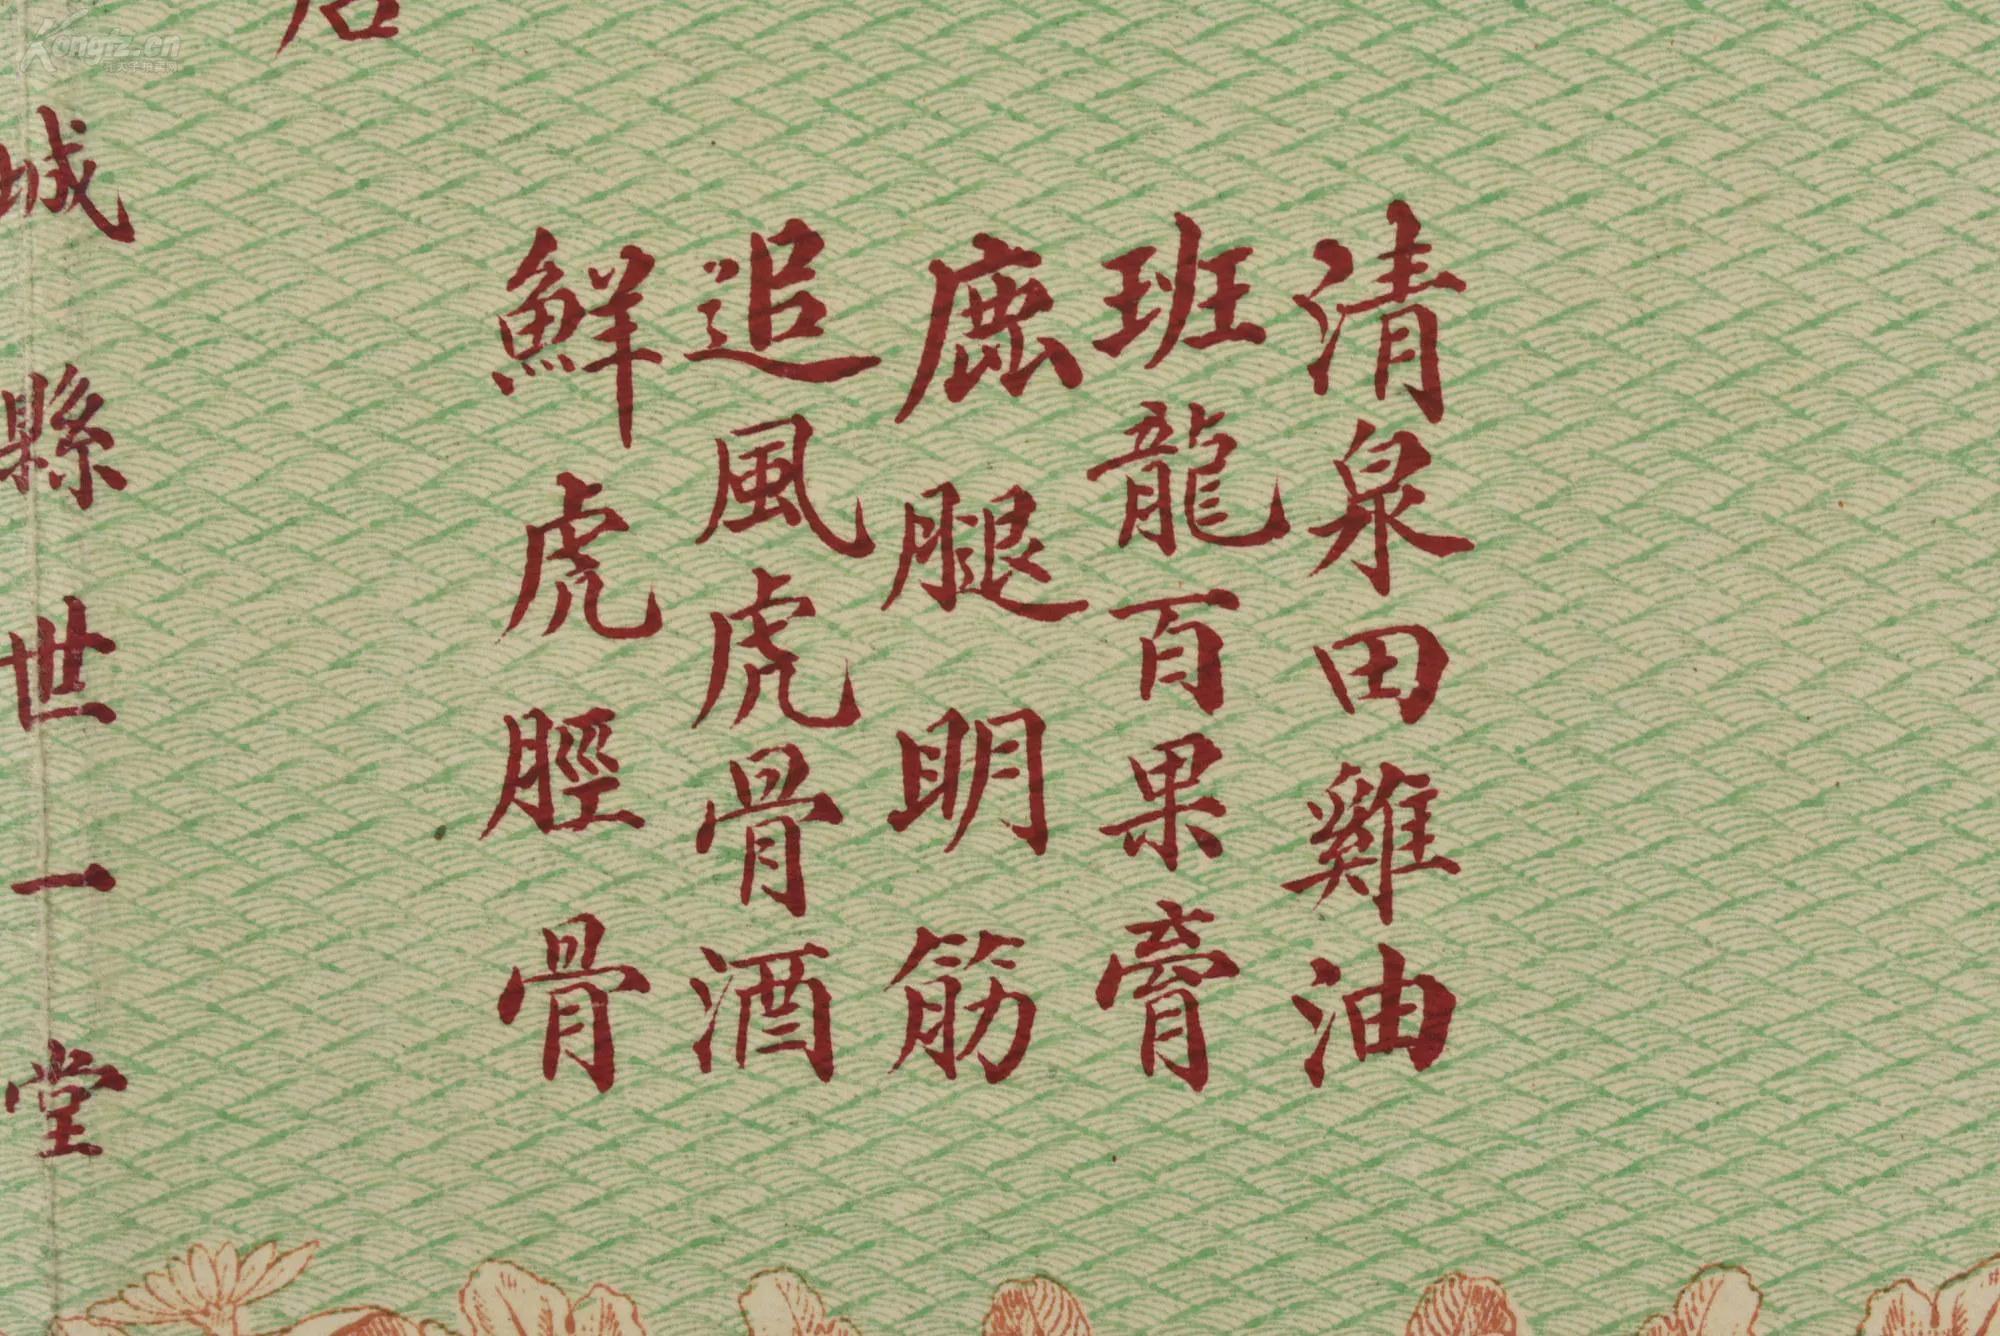 清泉田雞油
班龍百果膏
鹿腿明筋
追風虎骨酒
鮮虎脛骨
城縣世一堂
Kongfz.cn
孔夫子拍卖网